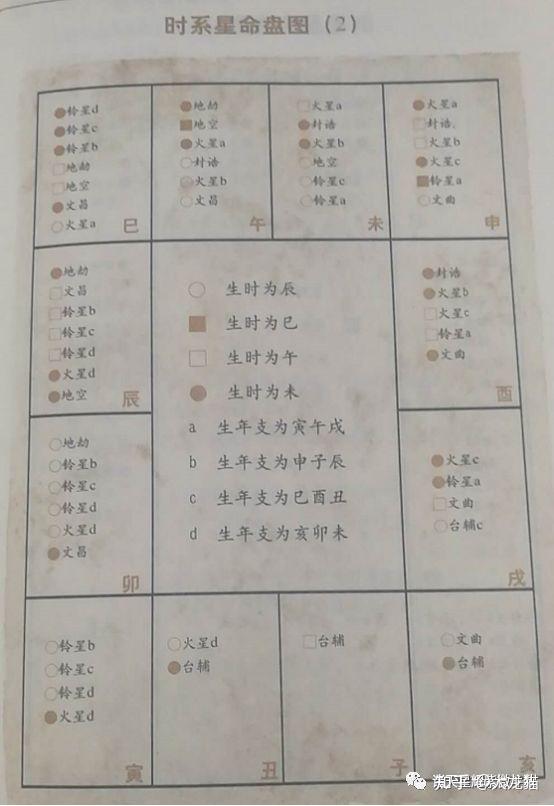 时系星命盘图（2）
●铃星d
●铃星c
●铃星b
□地劫
□地空
●文昌
○火星a
巳
●地劫
■地空
●火星a
○封诰
○火星b
○文昌
午
□火星a
●封诰
●火星b
○地空
○铃星c
○铃星a
未
●火星a
□封诰
□火星b
●火星c
■铃星a
○文曲
申
●地劫
□文昌
□铃星b
□铃星c
□铃星d
●火星d
●地空
辰
○ 生时为辰
■ 生时为巳
□ 生时为午
● 生时为未
a 生年支为寅午戌
b 生年支为申子辰
c 生年支为巳酉丑
d 生年支为亥卯未
●封诰
●火星b
□火星c
□铃星a
●文曲
酉
○地劫
○铃星b
○铃星c
○铃星d
○火星d
●文昌
卯
●火星c
●铃星a
□文曲
○台辅c
戌
○铃星b
○铃星c
○铃星d
●火星d
寅
○火星d
●台辅
丑
□台辅
子
○文曲
●台辅
亥
知乎 @大龙猫